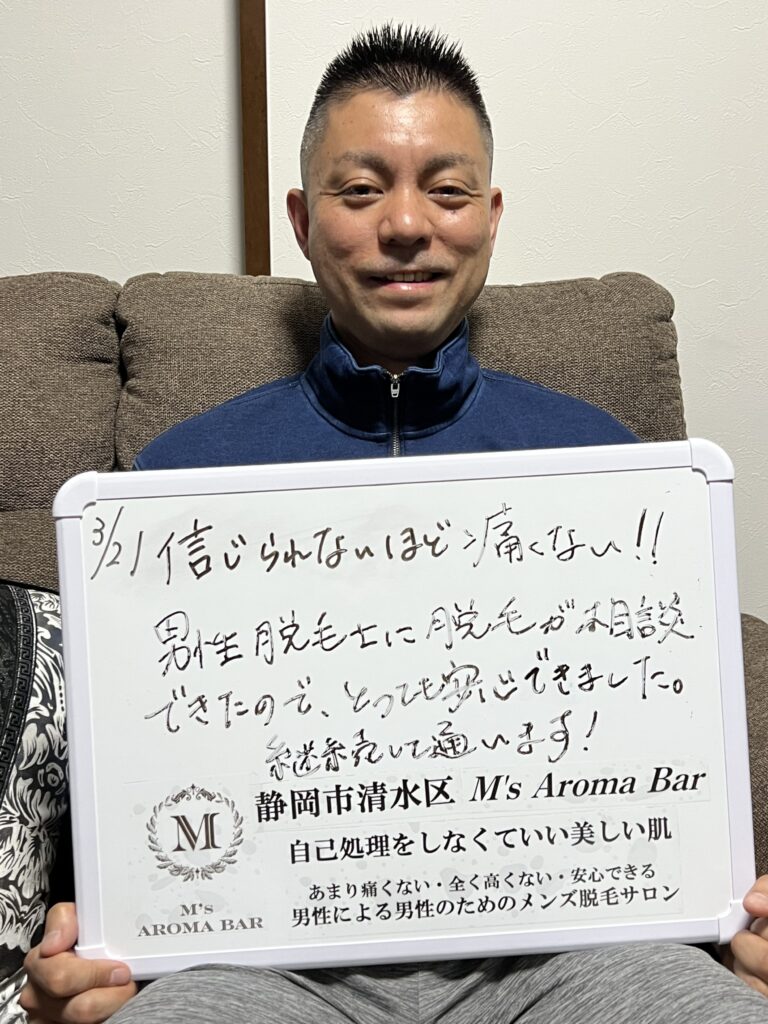 3/21 信じられないほど痛くない!!
男性脱毛士に脱毛が相談
できたので、とっても安心できました。
継続して通います!
静岡市清水区 M's Aroma Bar
自己処理をしなくていい美しい肌
あまり痛くない・全く高くない・安心できる
男性による男性のためのメンズ脱毛サロン
M
M's
AROMA BAR